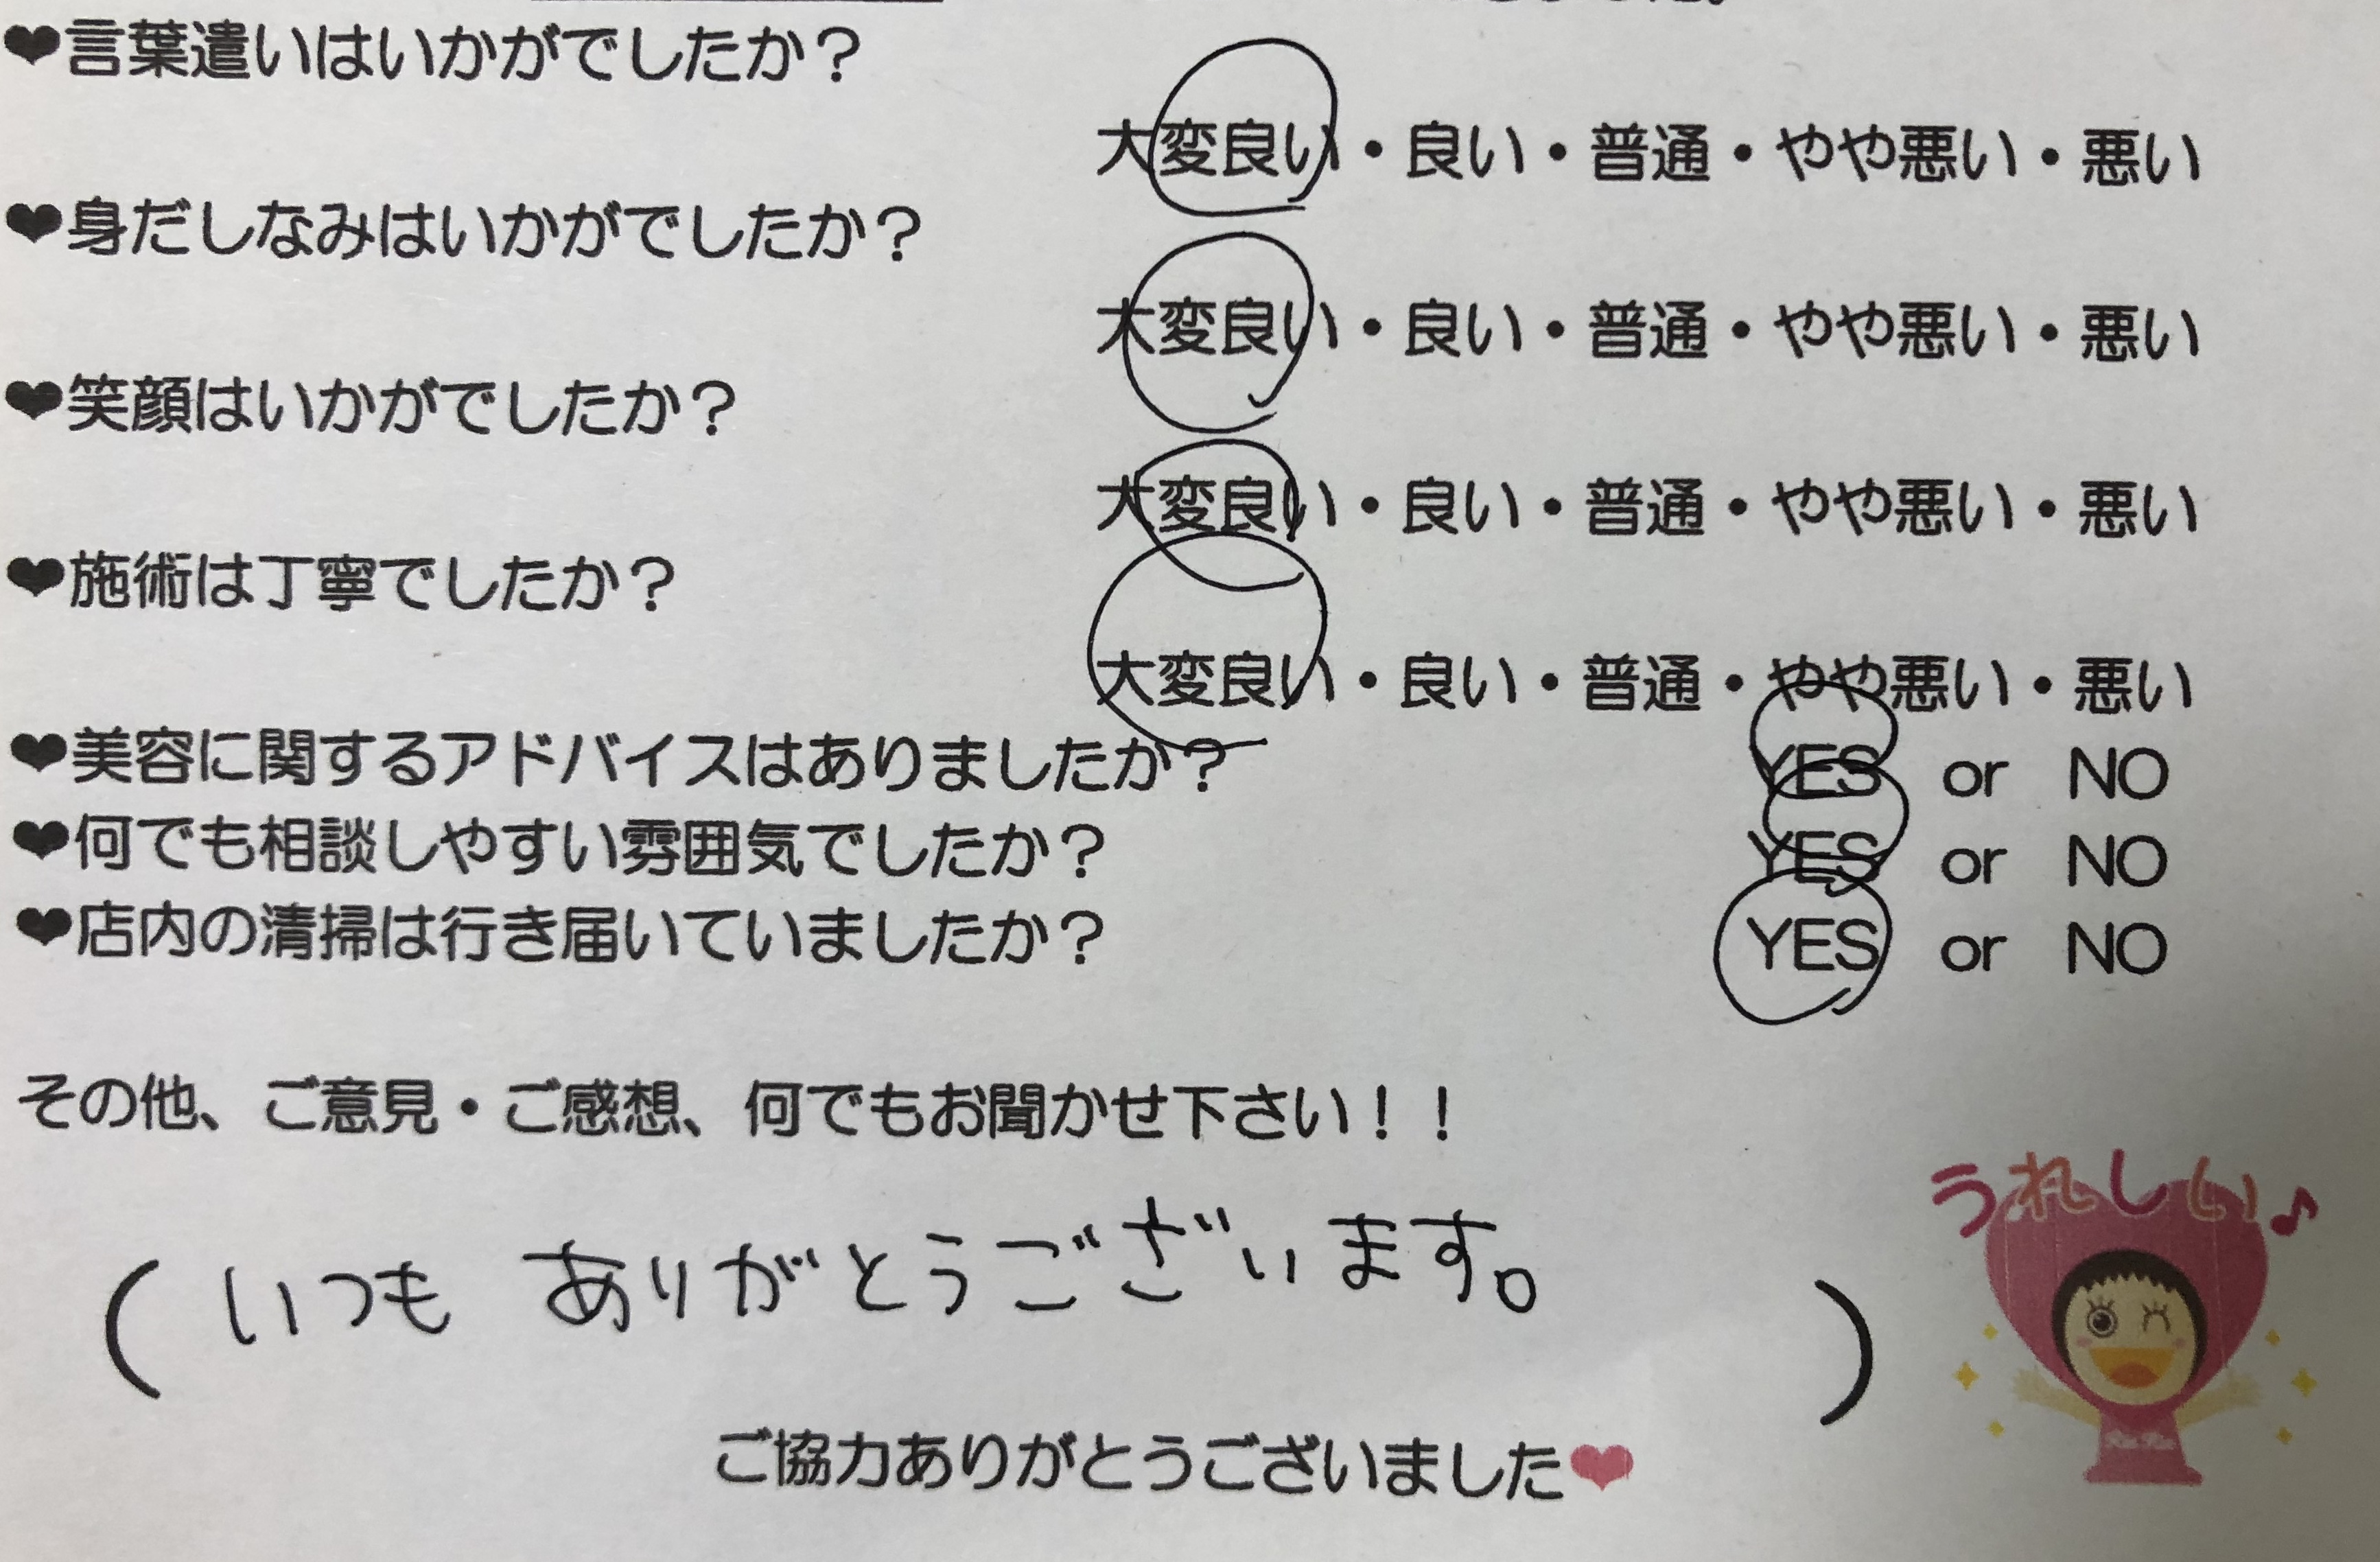 ❤言葉遣いはいかがでしたか？
大変良い・良い・普通・やや悪い・悪い
❤身だしなみはいかがでしたか？
大変良い・良い・普通・やや悪い・悪い
❤笑顔はいかがでしたか？
大変良い・良い・普通・やや悪い・悪い
❤施術は丁寧でしたか？
大変良い・良い・普通・やや悪い・悪い
❤美容に関するアドバイスはありましたか？ YES or NO
❤何でも相談しやすい雰囲気でしたか？ YES or NO
❤店内の清掃は行き届いていましたか？ YES or NO
その他、ご意見・ご感想、何でもお聞かせ下さい！！
うれしい♪
（いつも ありがとうございます。）
ご協力ありがとうございました❤